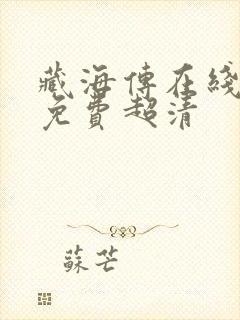 藏海傳在綫
免費超清
蘇芒